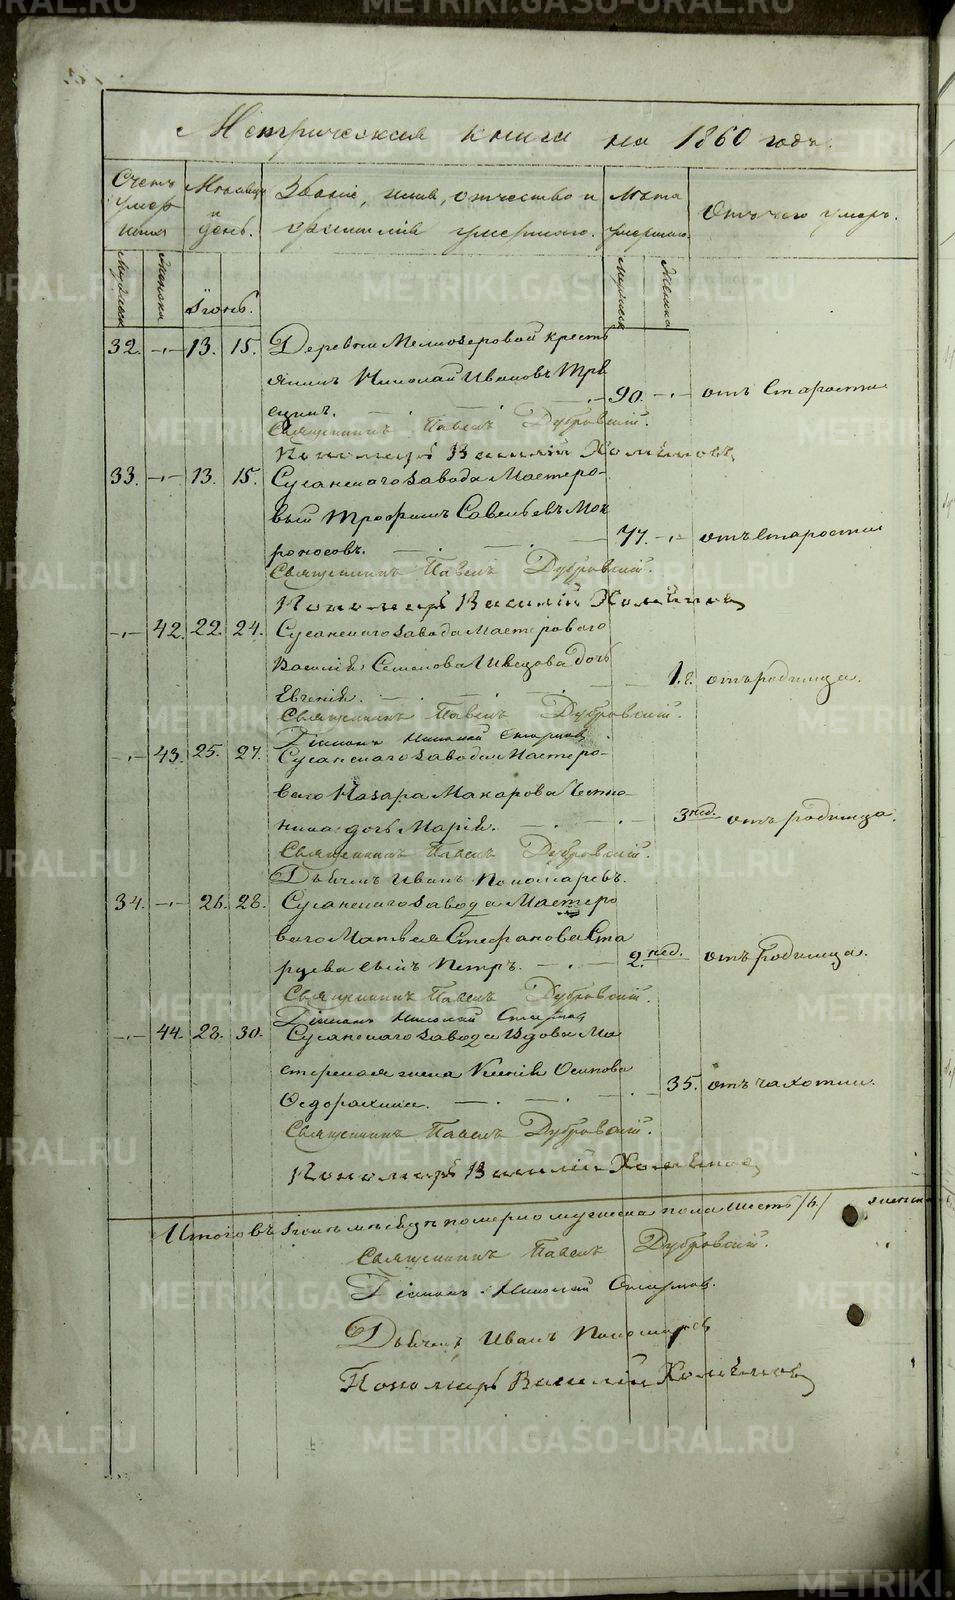 Метрическая книга на 1860 годъ.
Счетъ умершихъ
Мѣсяцъ и день.
Званіе, имя, отчество и фамилія умершаго.
Лѣта умершаго.
Отъ чего умеръ.
Мужеска
Женска
Іюнь.
Мужска
Женска
32. -„- 13. 15. Деревни Мелкозеровой кресть
янинъ Николай Ивановъ
90. -„- отъ старости
Священникъ Павелъ Дубровскій.
Пономарь Василій Хомяковъ
33. -„- 13. 15. Сусанскаго завода Мастеро-
вый Трофимъ Савельевъ Мок
роносовъ. 77. -„- отъ старости
Священникъ Павелъ Дубровскій.
Пономарь Василій Хомяковъ
-„- 42. 22. 24. Сусанскаго завода мастероваго
Василія Семенова Швецова дочь
Евгенія. 1.г. отъ родимца.
Священникъ Павелъ Дубровскій.
Діаконъ Николай
-„- 43. 25. 27. Сусанскаго завода Мастеро-
ваго Назара Макарова
дочь Марія. 3 нед. отъ родимца.
Священникъ Павелъ Дубровскій.
Дьячекъ Иванъ Пономаревъ.
34. -„- 26. 28. Сусанскаго завода Мастеро
ваго Матвея Стефанова Ста
рцева сынъ Петръ. 2. нед. отъ родимца.
Священникъ Павелъ Дубровскій.
Діаконъ Николай
-„- 44. 28. 30. Сусанскаго завода вдова Ма
стерская жена Ксенія Осипова
35. отъ чахотки.
Священникъ Павелъ Дубровскій.
Пономарь Василій Хомяковъ
Итого въ Іюнѣ мѣсяцѣ померло мужеска пола шесть /6/ женска
Священникъ Павелъ Дубровскій.
Діаконъ Николай
Дьячекъ Иванъ Пономаревъ
Пономарь Василій Хомяковъ
METRIKI.GASO-URAL.RU